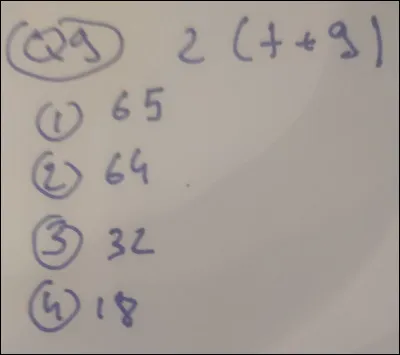 Q9 2 (7+9)
1 65
2 64
3 32
4 18